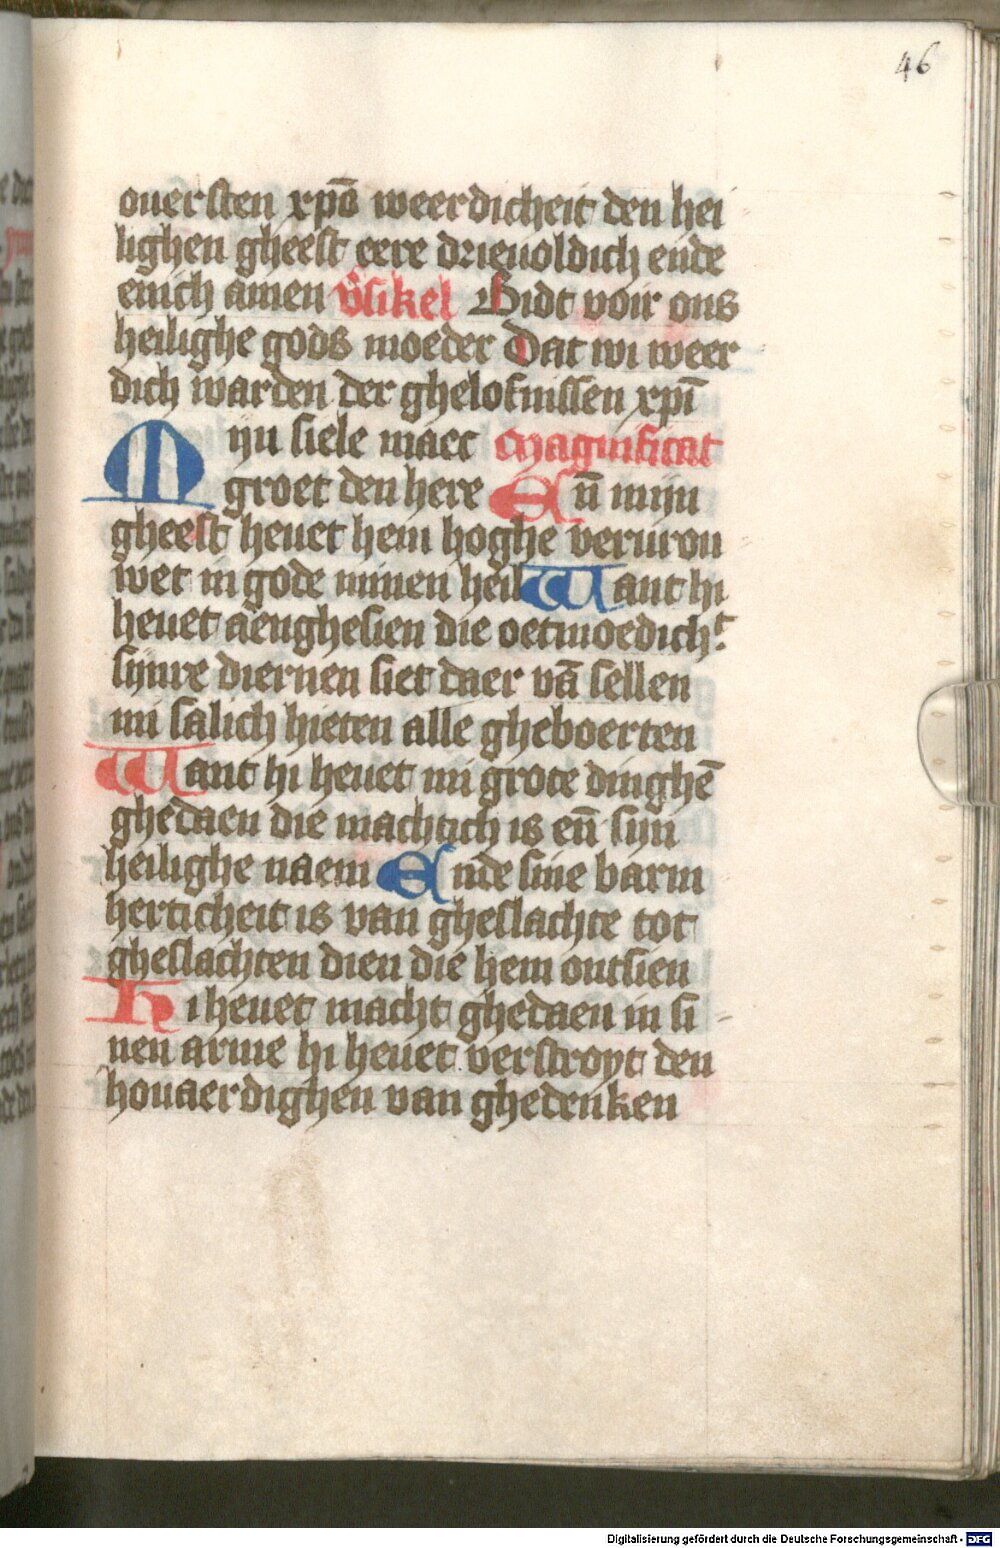 46
ouersten xpō weerdicheit den hei
lighen gheest eere drieuoldich ende
enich amen v̄sikel Bidt voir ons
heilighe gods moeder Dat wi weer
dich warden der ghelofnissen xpī
Mijn siele maec Magnificat
groet den here En̄ mijn
gheest heuet hem hoghe verurou
wet in gode minen heil Want hi
heuet aēnghesien die oetmoedichᵗ
sijnre diernen siet daer vā sellen
mi salich hieten alle gheboerten
Want hi heuet mi grote dinghē
ghedaen die machtich is en̄ sijn
heilighe naem Ende sine barm
herticheit is van gheslachte tot
gheslachten dien die hem ontsien
Hi heuet macht ghedaen in si
nen arme hi heuet verstroyt den
houaerdighen van ghedenken
Digitalisierung gefördert durch die Deutsche Forschungsgemeinschaft - DFG